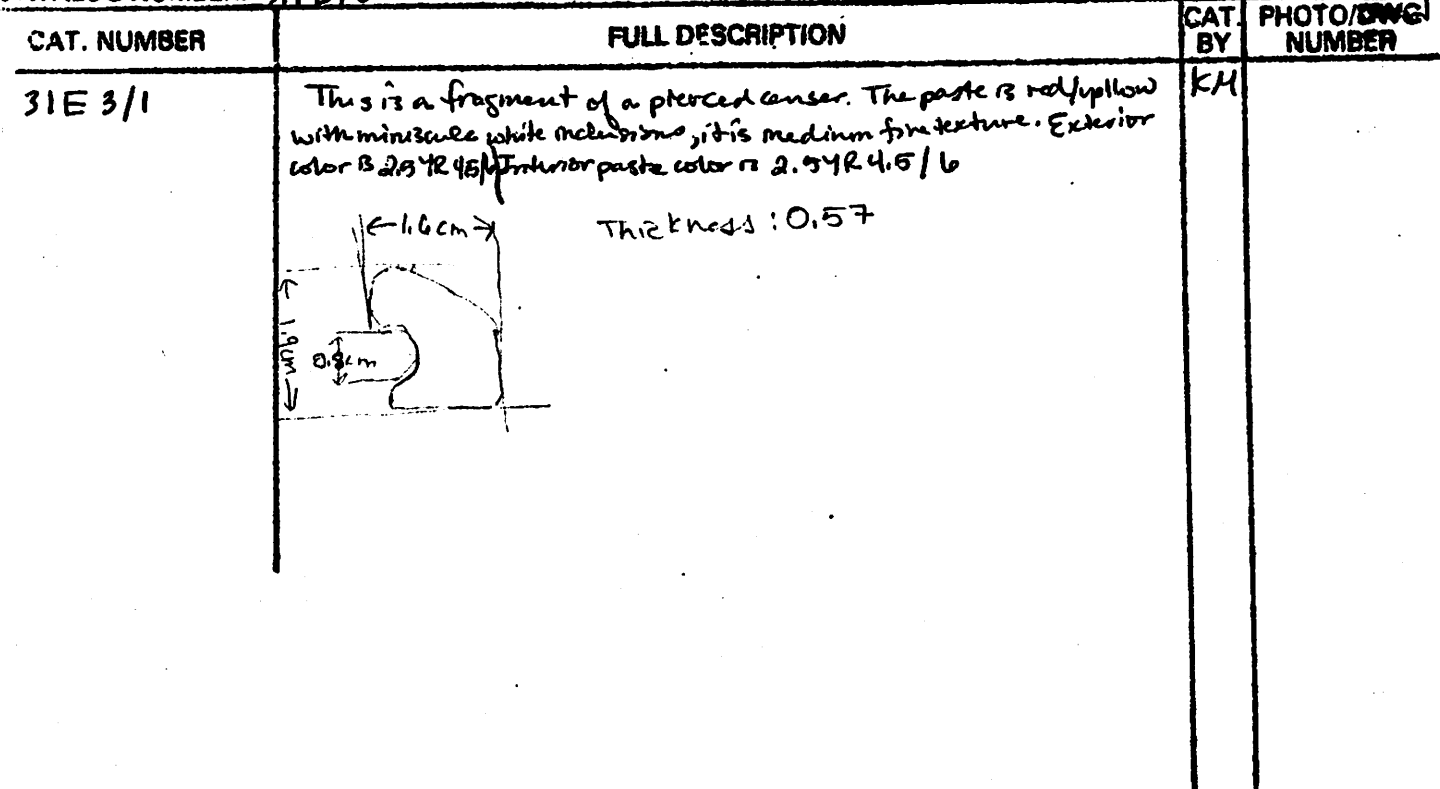 CAT. NUMBER
FULL DESCRIPTION
CAT. BY
PHOTO/DWG NUMBER
31E 3/1
This is a fragment of a pierced censer. The paste is red/yellow
KM
with miniscule white inclusions, it is medium fine texture. Exterior
color is 2.5YR 4.5/6 Interior paste color is 2.5YR 4.5/6
1.6cm
Thickness: 0.57
1.9cm
cm